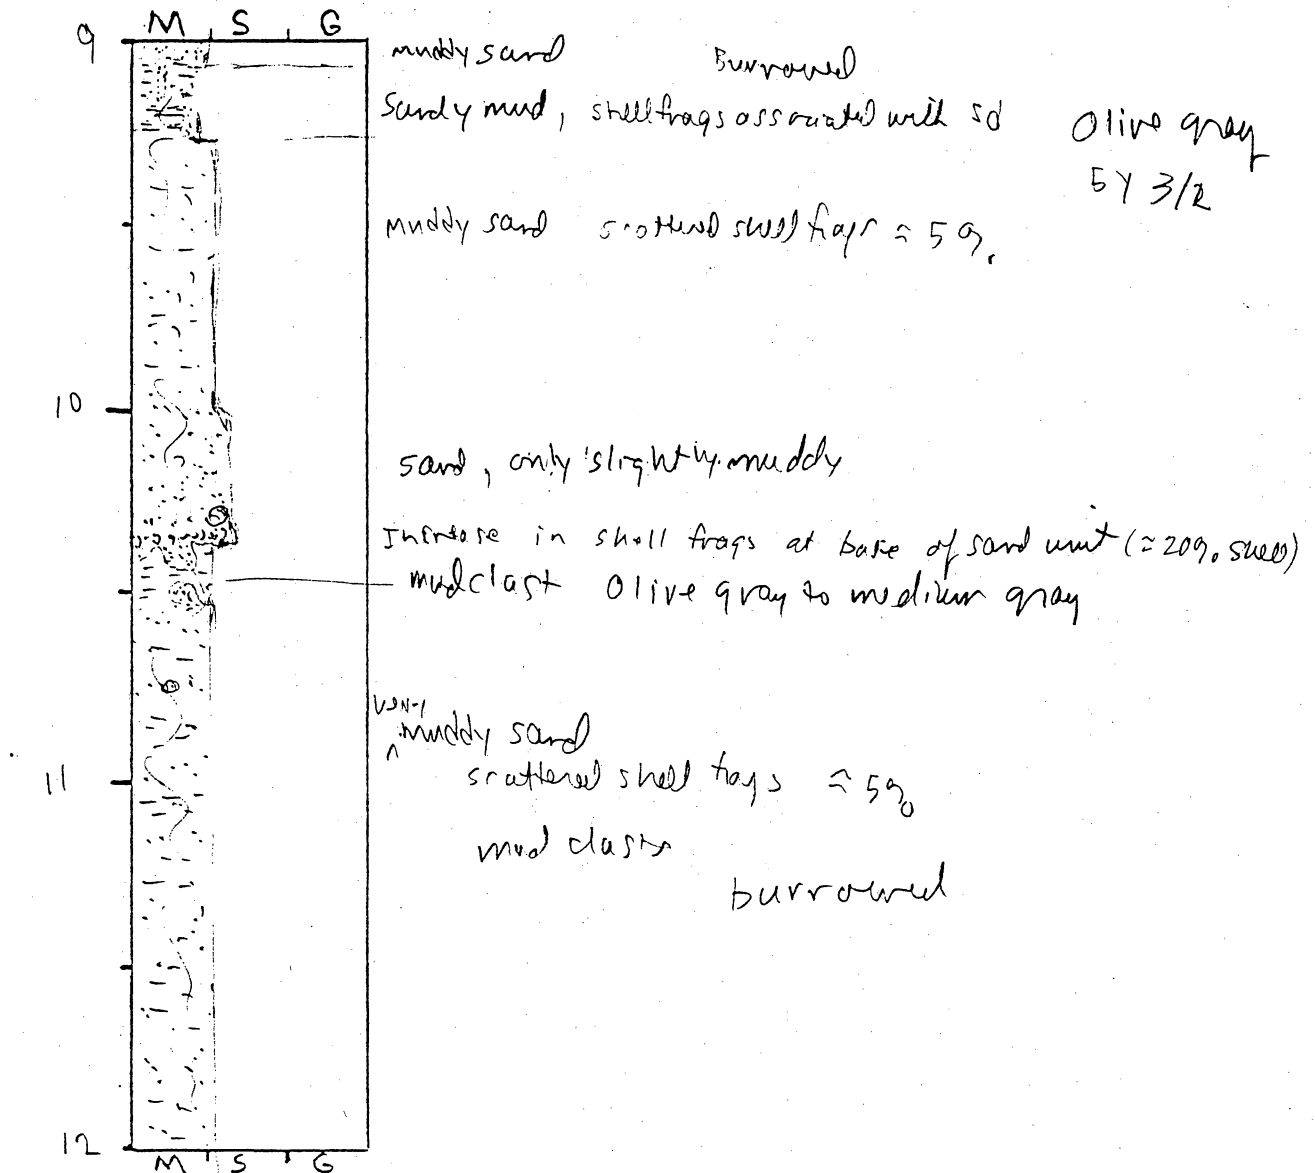 M S G
9
muddy sand Burrowed
Sandy mud, shell frags associated with sd
Olive gray
5Y 3/2
muddy sand scattered shell frags ≈ 5%
10
sand, only slightly muddy
Increase in shell frags at base of sand unit (≈20% shell)
mud clast Olive gray to medium gray
very
^ muddy sand
scattered shell frags ≈ 5%
11
mud clasts
burrowed
12
M S G